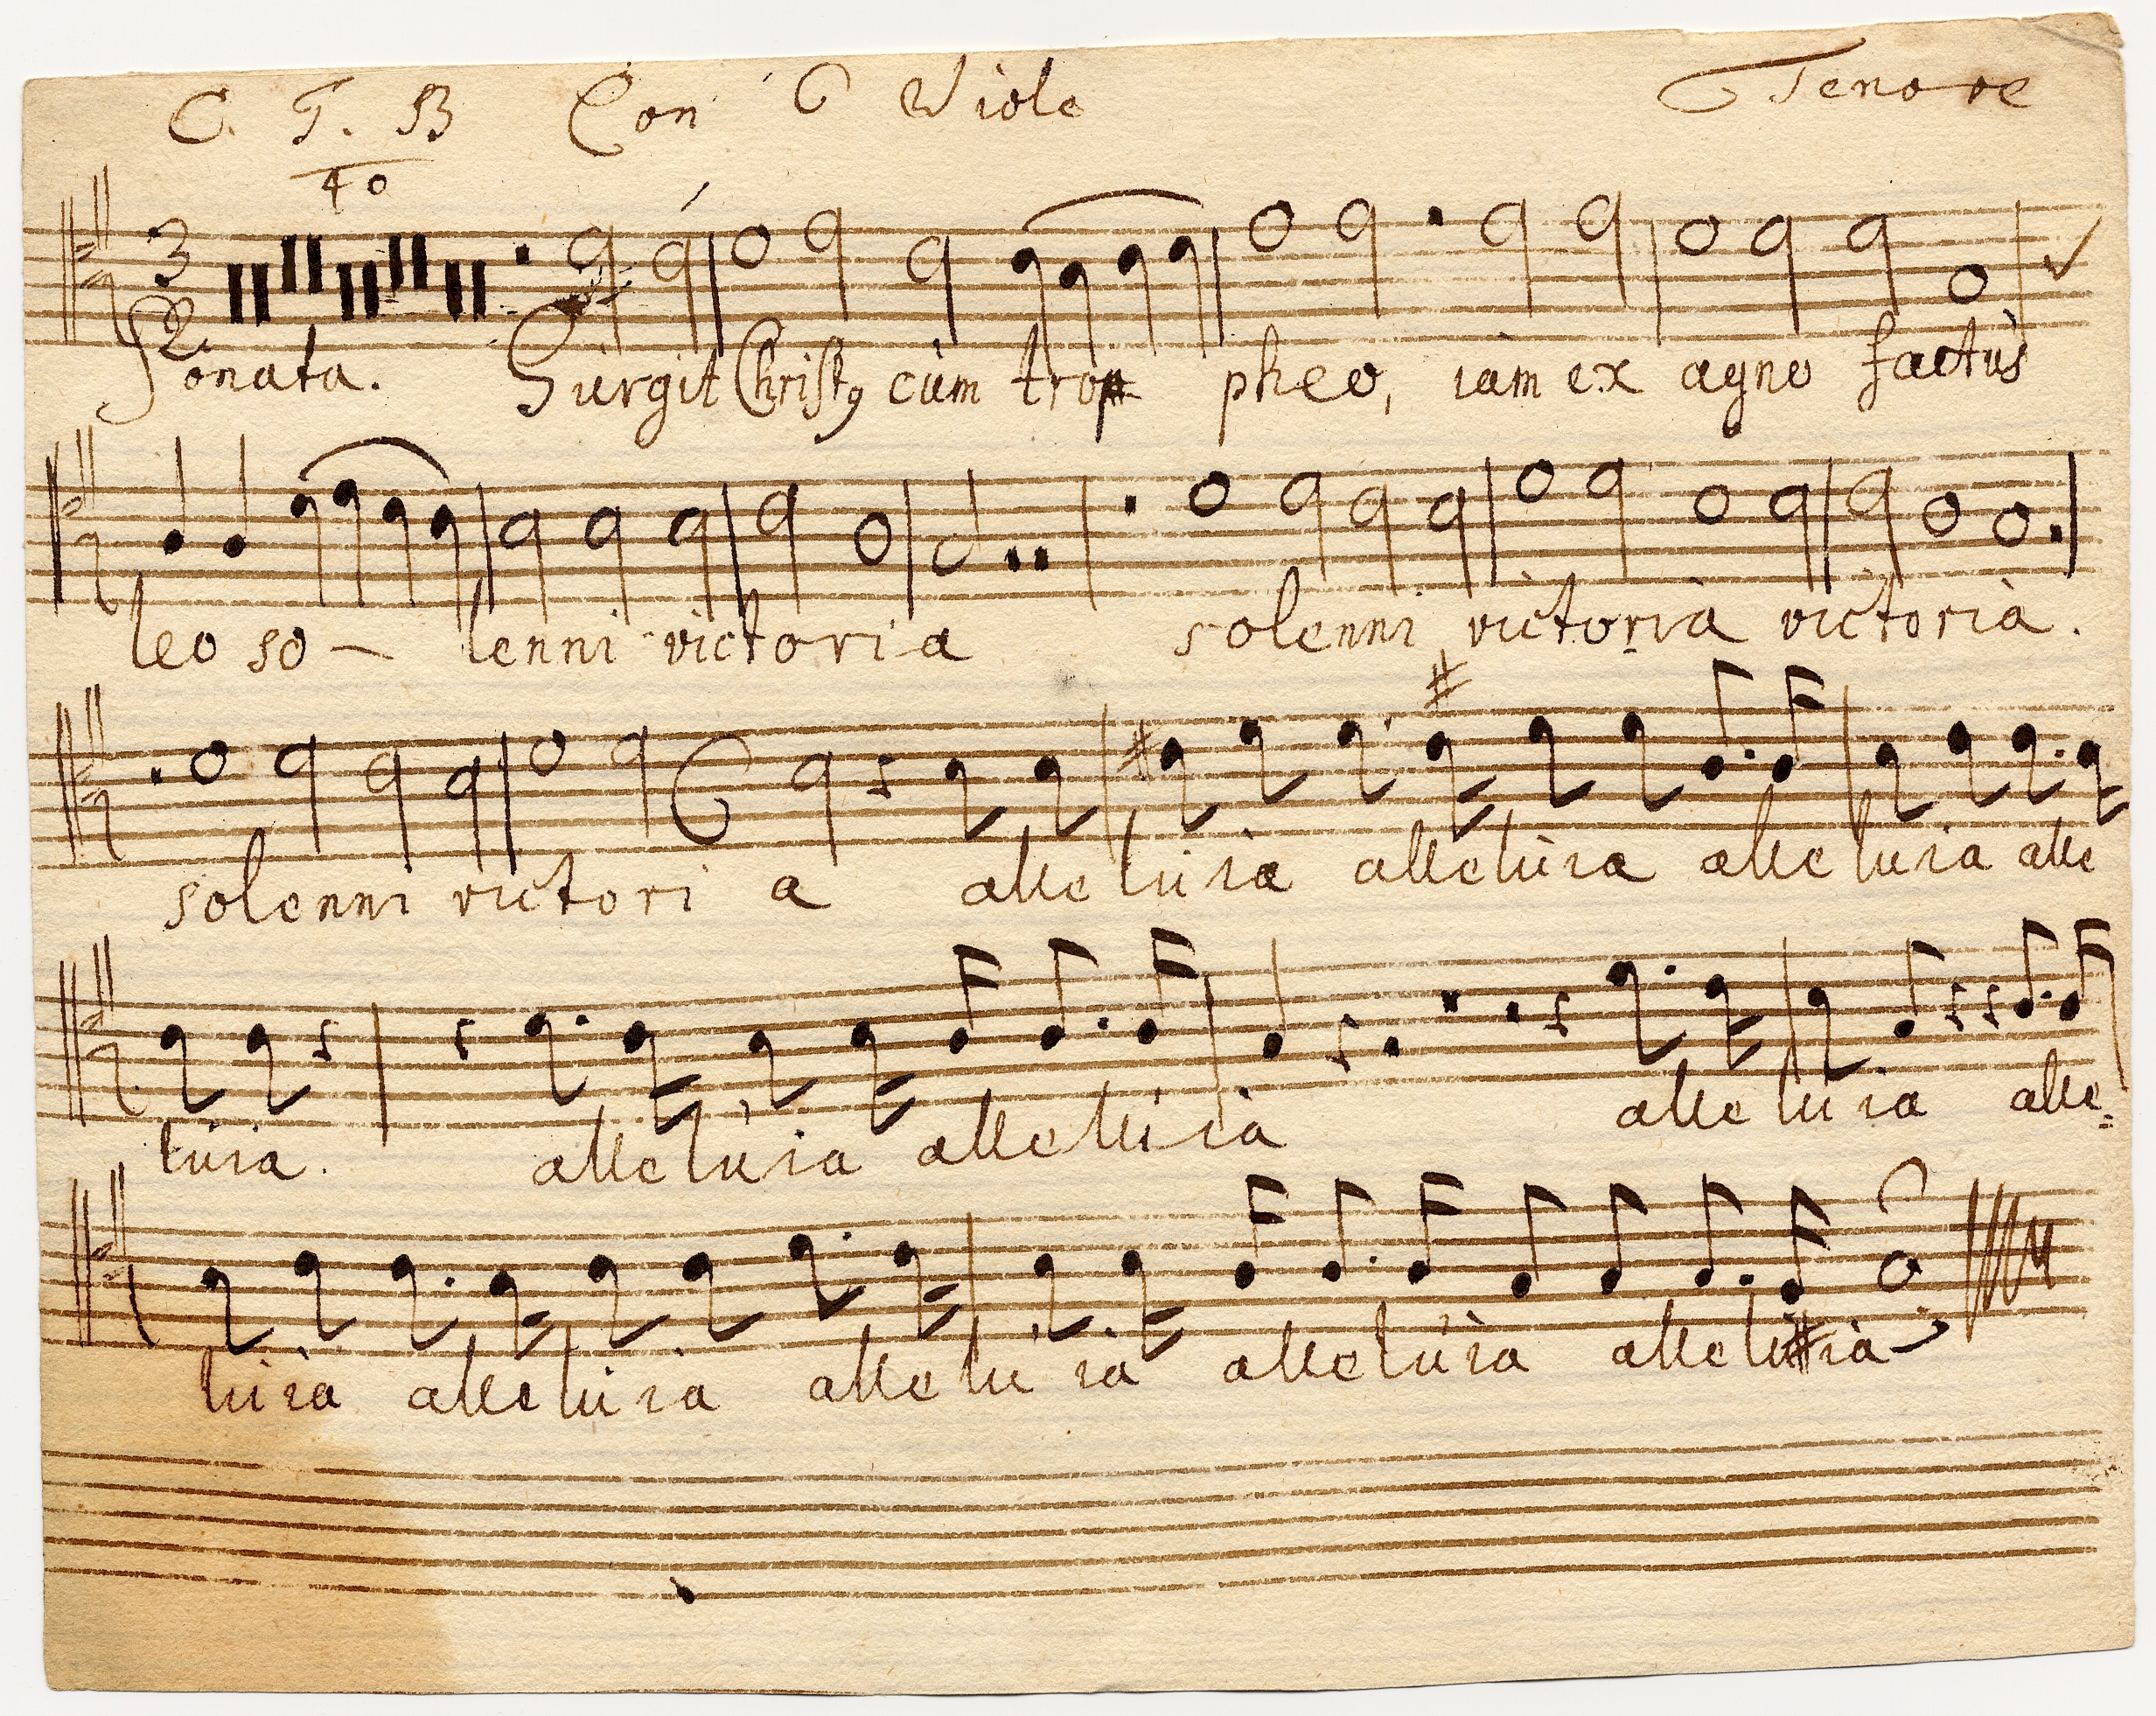 C. T. B Con 6 Viole Tenore
40
3
2
Sonata. Surgit Christꝯ cùm trop pheo, iàm ex agno factùs
leo so - lenni victoria solenni victoria victoria.
solenni victori a alleluia alleluia alleluia alle
luia. alleluia alleluia alleluia alle=
luia alleluia alleluia alleluia alleluia